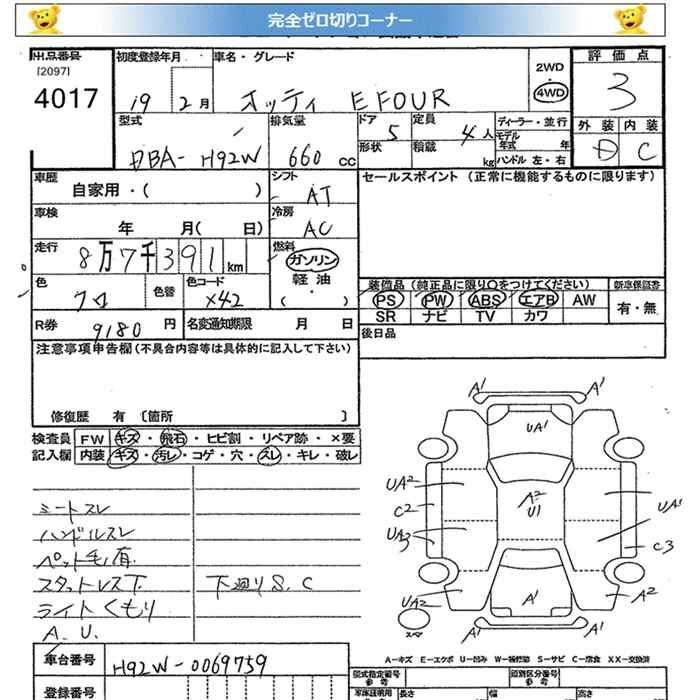 完全ゼロ切りコーナー
出品番号
[2097]
4017
初度登録年月
19 2月
車名・グレード
オッティ E FOUR
2WD
・
4WD
評価点
3
型式
DBA-H92W
排気量
660 cc
ドア 5
形状
定員 4人
積載 kg
ディーラー・並行
モデル年式 年
ハンドル 左・右
外装 内装
D C
車歴
自家用・( )
シフト
AT
セールスポイント (正常に機能するものに限ります)
車検
年 月( 日)
冷房
AC
走行
8万7千391km
燃料
ガソリン
軽油
・
( )
色
クロ
色替
色コード
X42
装備品 (純正品に限り○をつけてください)
新車保証書
PS PW ABS エアB AW
SR ナビ TV カワ
有・無
R券 9180 円
名変通知期限 月 日
後日品
注意事項申告欄(不具合内容等は具体的に記入して下さい)
修復歴 有 〔箇所 〕
検査員記入欄
FW キズ・飛石・ヒビ割・リペア跡・×要
内装 キズ・汚レ・コゲ・穴・スレ・キレ・破レ
シートスレ
ハンドルスレ
ペット毛有
スタットレス下
ライトくもり
A.U.
下廻りS.C
A1 A1
UA1
UA2
C2
A2
U1
UA1
UA2
3
C3
UA2
A2
スペア
A1
A1 A1
A-キズ E-エクボ U-凹み W-補修跡 S-サビ C-腐食 XX-交換済
車台番号
H92W-0069759
登録番号
型式指定番号
参考
類別区分番号
参考
車庫証明用
参考
長さ
幅
高さ